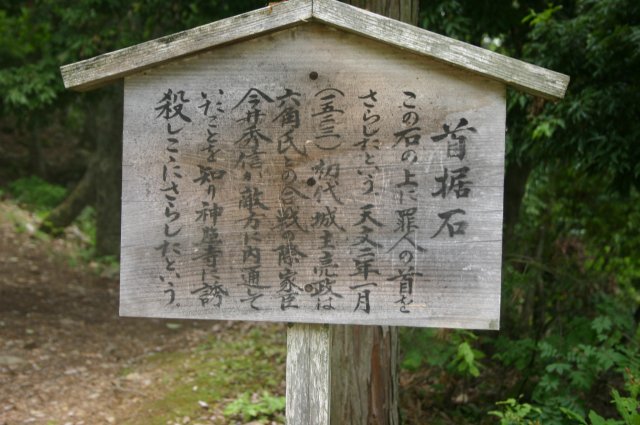 首据石
この石の上に罪人の首を
さらしたという。天文二年一月
(一五三三)初代城主亮政は
六角氏との合戦の際家臣
今井秀信が敵方に内通して
いたことを知り神照寺に誘
殺しここにさらしたという。